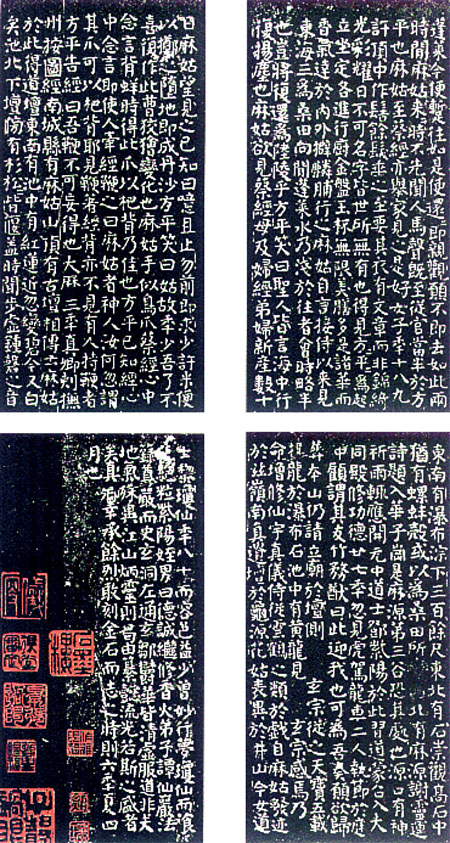 蓬萊今便蹔往如是便還還即親觀願不即去如此兩
時間麻姑來時不先聞人馬聲既至從官當半於方
平也麻姑至蔡經亦舉家見之是好女子年十八九
許頂中作髻餘髮垂之至要其衣有文章而非錦綺
光彩耀日不可名字皆世所無有也得見方平方平為起
立坐定各進行廚金盤玉杯無限美膳多是諸華而
香氣達於內外擗麟脯行之麻姑自言接待以來見
東海三為桑田向間蓬萊水乃淺於往者會時略半
也豈將復還為陵陸乎方平笑曰聖人皆言海中行
復揚塵也麻姑欲見蔡經母及婦經弟婦新產數十
日麻姑望見之已知曰噫且止勿前即求少許米便
以擲之墮地即成丹沙方平笑曰姑故年少吾了不
喜復作此曹狡獪變化也麻姑手似鳥爪蔡經心中
念言背蛘時得此爪以杷背乃佳也方平已知經心
中念言即使人牽經鞭之曰麻姑者神人汝何忽謂
其爪可以杷背耶見鞭著經背亦不見有人持鞭者
方平告經曰吾鞭不可妄得也大曆三年真卿刺撫
州按圖經南城縣有麻姑山頂有古壇相傳云麻姑
於此得道壇東南有池中有紅蓮近忽變碧今又白
矣池北下壇傍有杉松皆偃蓋時聞步虛鍾磬之音
東南有瀑布淙下三百餘尺東北有石崇觀高石中
猶有螺蚌殼或以為桑田所變西北有麻源謝靈運
詩題入華子崗是麻源第三谷恐其處也源口有神
祈雨輒應開元中道士鄧紫陽於此習道蒙召入大
同殿修功德廿七年忽見虎駕龍車二人執節於庭
中顧謂其友竹務猷曰此迎我也可為吾奏願欲歸
葬本山仍請立廟於壇側 玄宗從之天寶五載
投龍於瀑布石池中有黃龍見 玄宗感焉乃
命增修仙宇真儀侍從雲鶴之類於戲自麻姑發跡
於茲嶺南真遺壇於龜源花姑表異於井山今女道
士黎瓊仙年八十而容色益少曾妙行夢瓊仙而飡花
絕粒紫陽姪男曰德誠繼修香火弟子譚仙巖法
籙尊嚴而史玄洞左通玄鄒鬱華皆清虛服道非夫
地氣殊異江山炳靈則曷由纂懿流光若斯之盛者
矣真卿幸承餘烈敢刻金石而志之時則六年夏四
月也